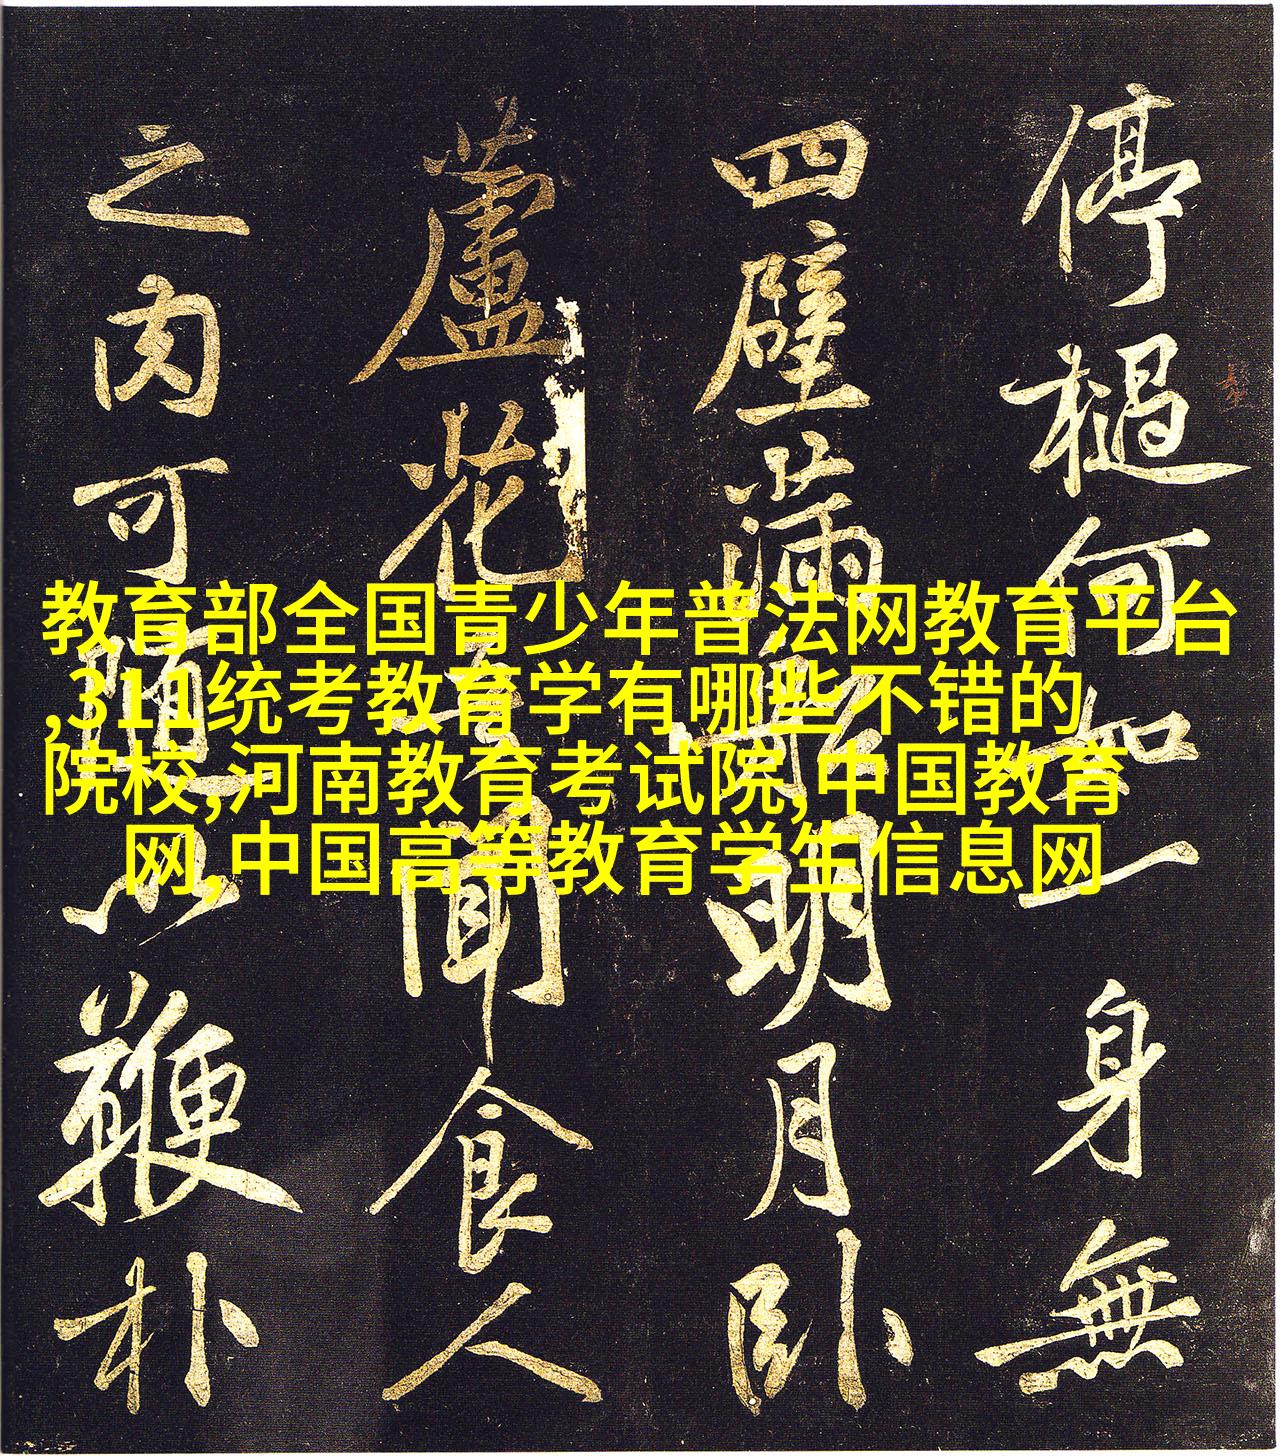 停檛何如一身無
四壁滿船明月臥
蘆花吾聞食人
之肉可隨以鞭朴
教育部全国青少年普法网教育平台
,311统考教育学有哪些不错的
院校,河南教育考试院,中国教育
网,中国高等教育学生信息网